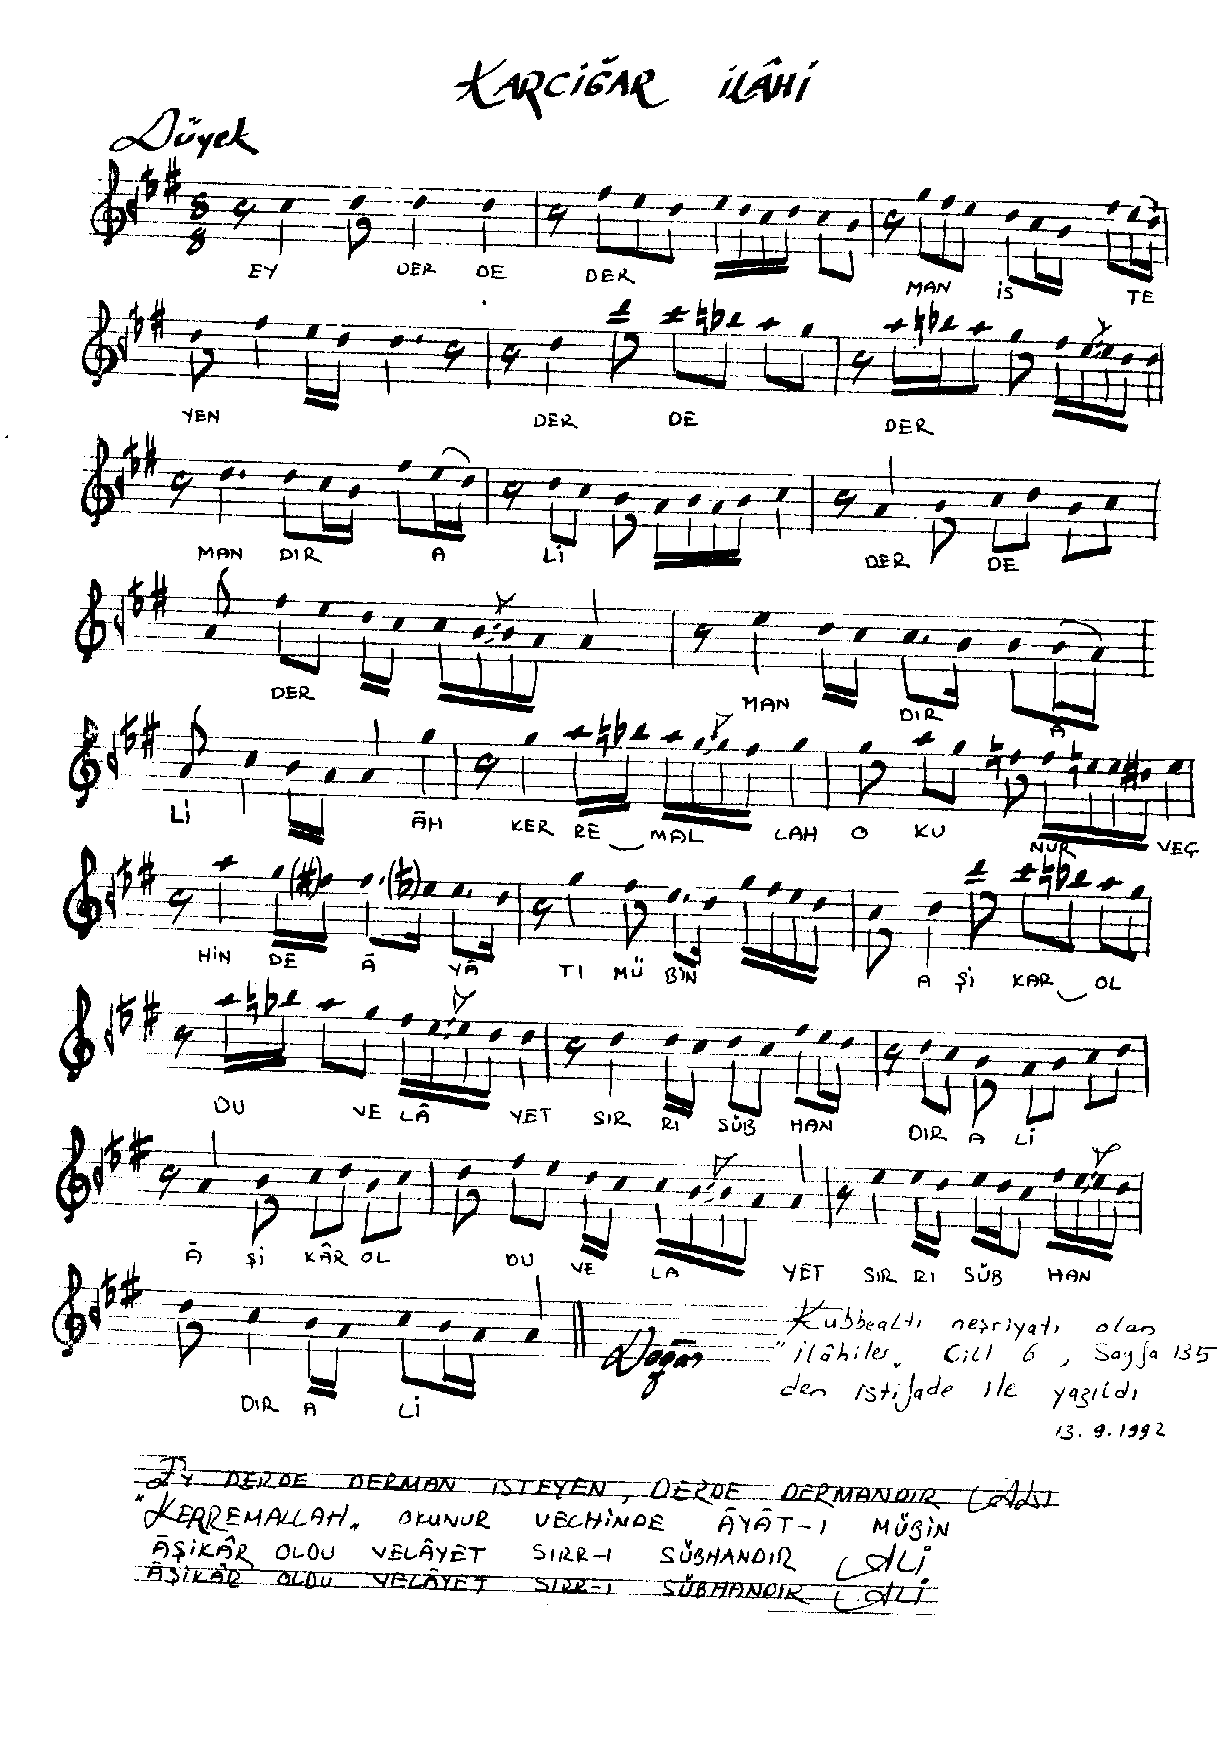 KARCIĞAR İLÂHİ
Düyek
8
8
EY DER DE DER MAN İS TE
YEN DER DE DER
MAN DIR A Lİ DER DE
DER MAN DIR A
Lİ ÂH KER RE MAL LAH O KU NUR VEÇ
HİN DE Â YÂ TI MÜ BİN A Şİ KAR OL
DU VE LÂ YET SIR RI SÜB HAN DIR A Lİ
Â Şİ KÂR OL DU VE LA YET SIR RI SÜB HAN
DIR A Lİ
Doğan
Kubbealtı neşriyatı olan
"ilâhiler" Cilt 6, Sayfa 135
den istifade ile yazıldı
13.9.1992
EY DERDE DERMAN İSTEYEN, DERDE DERMANDIR ALİ
"KERREMALLAH" OKUNUR VECHİNDE ÂYÂT-I MÜBİN
ÂŞİKÂR OLDU VELÂYET SIRR-I SÜBHANDIR ALİ
ÂŞİKÂR OLDU VELÂYET SIRR-I SÜBHANDIR ALİ